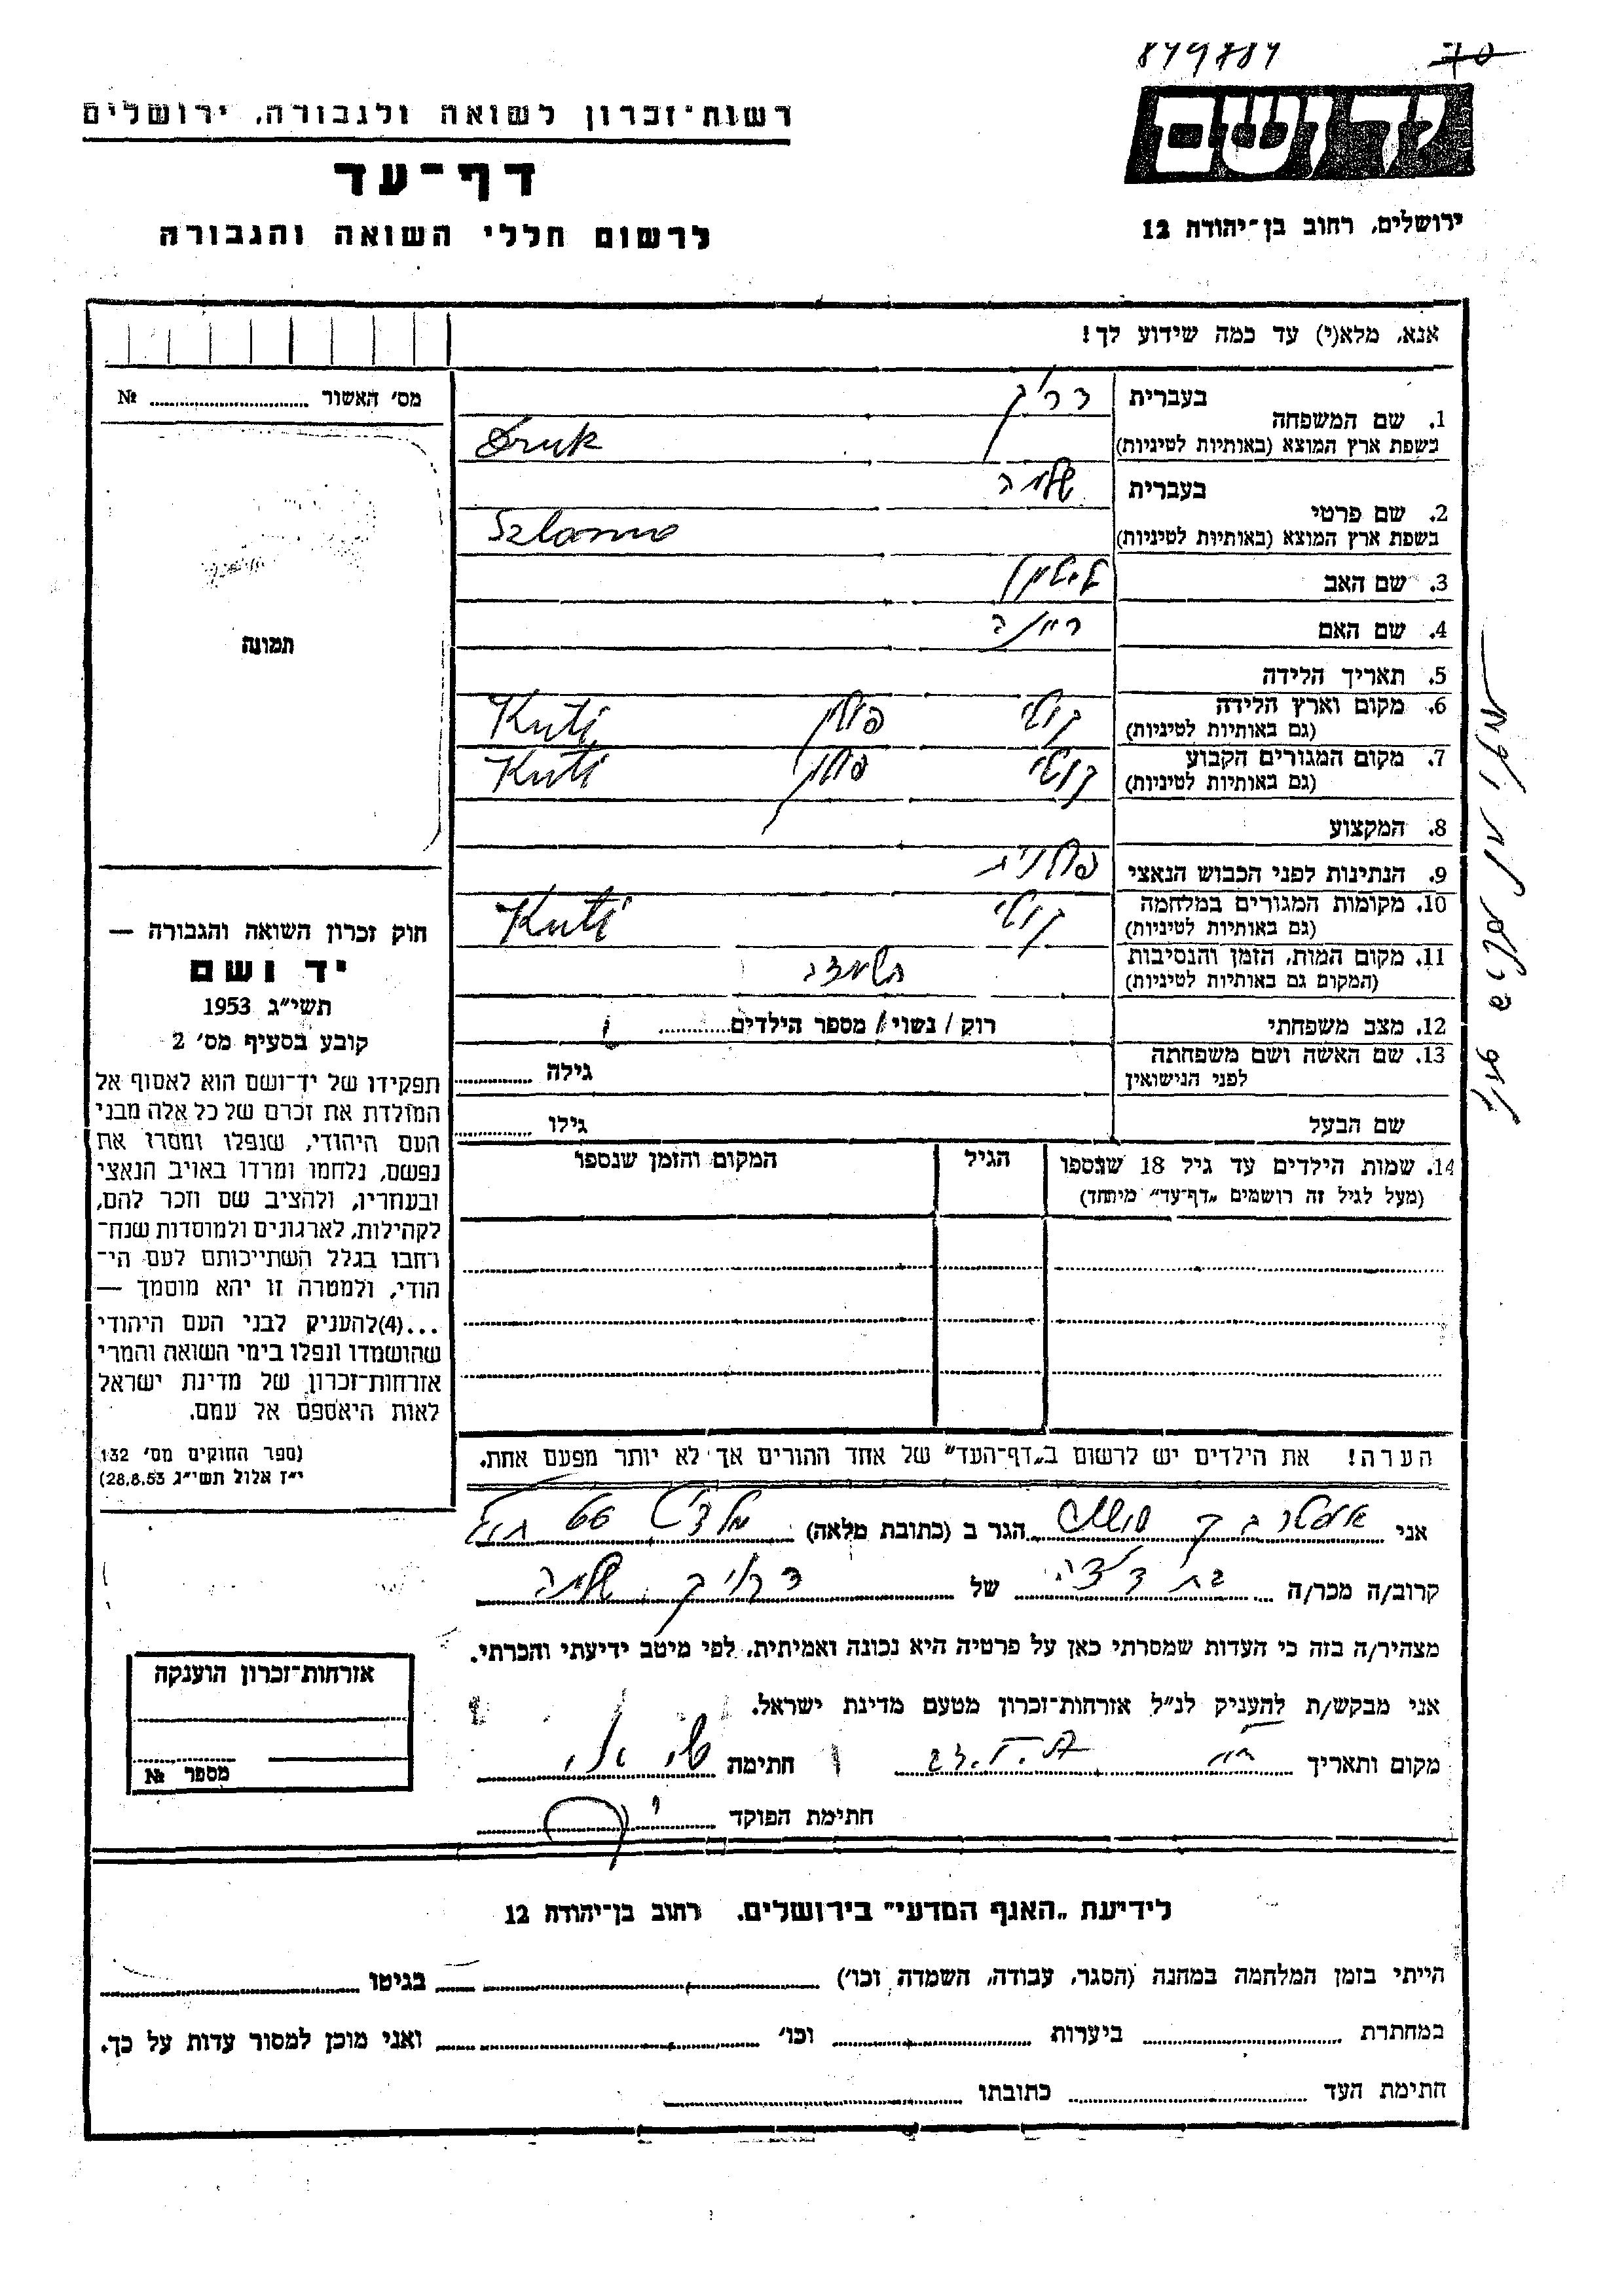 849784 70
רשות-זכרון לשואה ולגבורה, ירושלים
יד ושם
דף-עד
לרשום חללי השואה והגבורה
ירושלים, רחוב בן-יהודה 12
אנא, מלא(י) עד כמה שידוע לך!
מס' האשור № ..........
תמונה
1. שם המשפחה
בעברית דרוק
בשפת ארץ המוצא (באותיות לטיניות) Druk
2. שם פרטי
בעברית שלמה
בשפת ארץ המוצא (באותיות לטיניות) Szlomo
3. שם האב זלמן
4. שם האם
5. תאריך הלידה
6. מקום וארץ הלידה קוטי פולין Kuti
(גם באותיות לטיניות)
7. מקום המגורים הקבוע קוטי פולין Kuti
(גם באותיות לטיניות)
8. המקצוע
9. הנתינות לפני הכבוש הנאצי פולנית
10. מקומות המגורים במלחמה קוטי Kuti
(גם באותיות לטיניות)
11. מקום המות, הזמן והנסיבות השמדה
(המקום גם באותיות לטיניות)
12. מצב משפחתי רוק / נשוי / מספר הילדים..........
13. שם האשה ושם משפחתה גילה ..........
לפני הנישואין
שם הבעל גילו ..........
14. שמות הילדים עד גיל 18 שנספו הגיל המקום והזמן שנספו
(מעל לגיל זה רושמים „דף-עד" מיוחד)
הערה! את הילדים יש לרשום ב„דף-העד" של אחד ההורים אך לא יותר מפעם אחת.
חוק זכרון השואה והגבורה —
יד ושם
תשי"ג 1953
קובע בסעיף מס' 2
תפקידו של יד-ושם הוא לאסוף אל
המולדת את זכרם של כל אלה מבני
העם היהודי, שנפלו ומסרו את
נפשם, נלחמו ומרדו באויב הנאצי
ובעוזריו, ולהציב שם וזכר להם,
לקהילות, לארגונים ולמוסדות שנח-
רבו בגלל השתייכותם לעם הי-
הודי, ולמטרה זו יהא מוסמך —
...(4)להעניק לבני העם היהודי
שהושמדו ונפלו בימי השואה והמרי
אזרחות-זכרון של מדינת ישראל
לאות היאספם אל עמם.
(ספר החוקים מס' 132
י"ז אלול תשי"ג 28.8.53)
אני הגר ב (כתובת מלאה)
קרוב/ה מכר/ה בת דודה של דרוק שלמה
מצהיר/ה בזה כי העדות שמסרתי כאן על פרטיה היא נכונה ואמיתית, לפי מיטב ידיעתי והכרתי.
אני מבקש/ת להעניק לנ"ל אזרחות-זכרון מטעם מדינת ישראל.
מקום ותאריך חתימת
חתימת הפוקד
אזרחות-זכרון הוענקה
מספר №
לידיעת „האגף המדעי" בירושלים. רחוב בן-יהודה 12
הייתי בזמן המלחמה במחנה (הסגר, עבודה, השמדה וכו') .......... בגיטו ..........
במחתרת .......... ביערות .......... וכו' .......... ואני מוכן למסור עדות על כך.
חתימת העד .......... כתובתו ..........